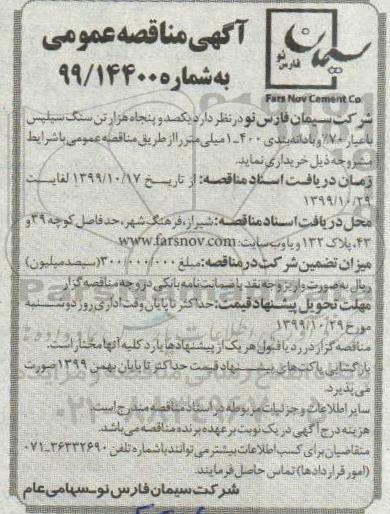 سیمان
فارس نو
Fars Nov Cement Co
آگهی مناقصه عمومی
به شماره ۹۹/۱۴۴۰۰
شرکت سیمان فارس نو در نظر دارد یکصد و پنجاه هزار تن سنگ سیلیس
با عیار ۷۰٪ و با دانه بندی ۴۰۰-۱ میلی متر را از طریق مناقصه عمومی با شرایط
مشروحه ذیل خریداری نماید.
زمان دریافت اسناد مناقصه: از تاریخ ۱۳۹۹/۱۰/۱۷ لغایت
۱۳۹۹/۱۰/۲۹
محل دریافت اسناد مناقصه: شیراز، فرهنگ شهر، حد فاصل کوچه ۳۹ و
۴۳، پلاک ۱۳۲ و یا وب سایت: www.farsnov.com
میزان تضمین شرکت در مناقصه: مبلغ ۳۰۰/۰۰۰/۰۰۰ (سیصد میلیون)
ریال به صورت واریز وجه نقد یا ضمانت نامه بانکی در وجه مناقصه گزار
مهلت تحویل پیشنهاد قیمت: حداکثر تا پایان وقت اداری روز دوشنبه
مورخ ۱۳۹۹/۱۰/۲۹
مناقصه گزار در رد یا قبول هر یک از پیشنهادها یا رد کلیه آنها مختار است.
بازگشایی پاکت های پیشنهاد قیمت حداکثر تا پایان بهمن ۱۳۹۹ صورت
می پذیرد.
سایر اطلاعات و جزئیات مربوطه در اسناد مناقصه مندرج است.
هزینه درج آگهی در یک نوبت بر عهده برنده مناقصه می باشد.
متقاضیان برای کسب اطلاعات بیشتر می توانند با شماره تلفن ۳۶۳۳۲۶۹۰-۰۷۱
(امور قراردادها) تماس حاصل فرمایند.
شرکت سیمان فارس نو-سهامی عام